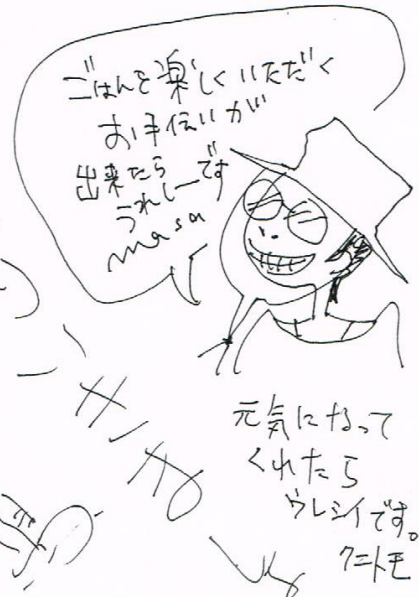 ごはんを楽しくいただく
お手伝いが
出来たら
うれしーです
masa
元気になって
くれたら
ウレシイです。
クニトモ